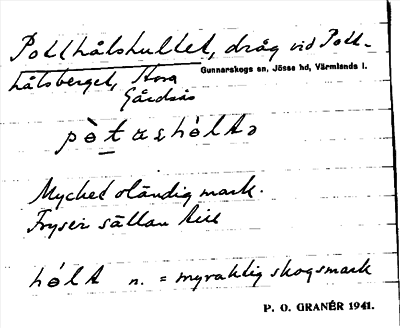 Pottkålshultet, dråg vid Pott-
kålsberget, Stora
Gunnarskogs sn, Jösse hd, Värmlands l.
Gårdsås
Mycket oländig mark.
Fryser sällan till
hólt n. = myraktig skogsmark
P. O. GRANÉR 1941.